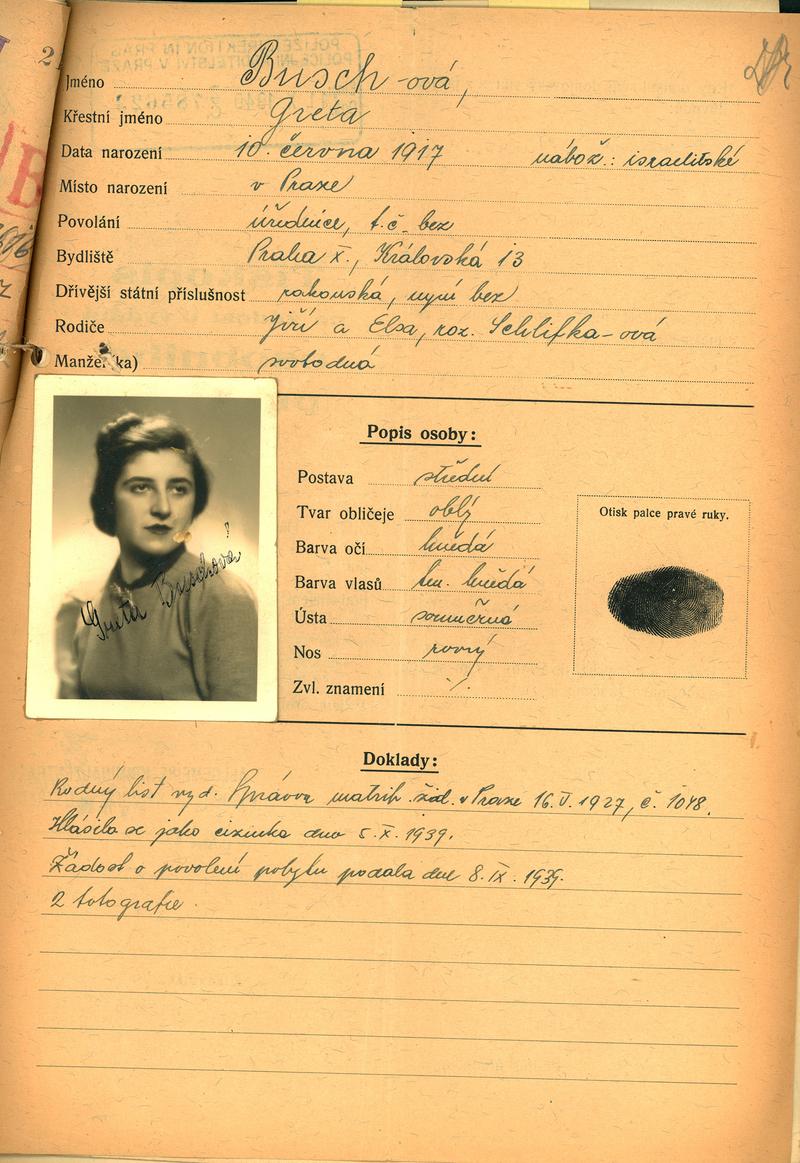 2
Jméno Busch-ová,
Křestní jméno Greta
Data narození 10. června 1917 nábož.: israelitské
Místo narození v Praze
Povolání úřednice, t.č. bez
Bydliště Praha X., Královská 13
Dřívější státní příslušnost rakouská, nyní bez
Rodiče Jiří a Elsa, roz. Schlifka-ová
Manžel(ka) svobodná
Popis osoby:
Postava střední
Tvar obličeje oblý
Barva očí hnědá
Barva vlasů tm. hnědá
Ústa souměrná
Nos rovný
Zvl. znamení ./.
Otisk palce pravé ruky.
Greta Buschová
Doklady:
Rodný list vyd. Správou matrik žid. v Praze 16.V.1927, č. 1048.
Hlásila se jako cizinka dne 5.X.1939.
Žádost o povolení pobytu podala dne 8.IX.1939.
2 fotografie.